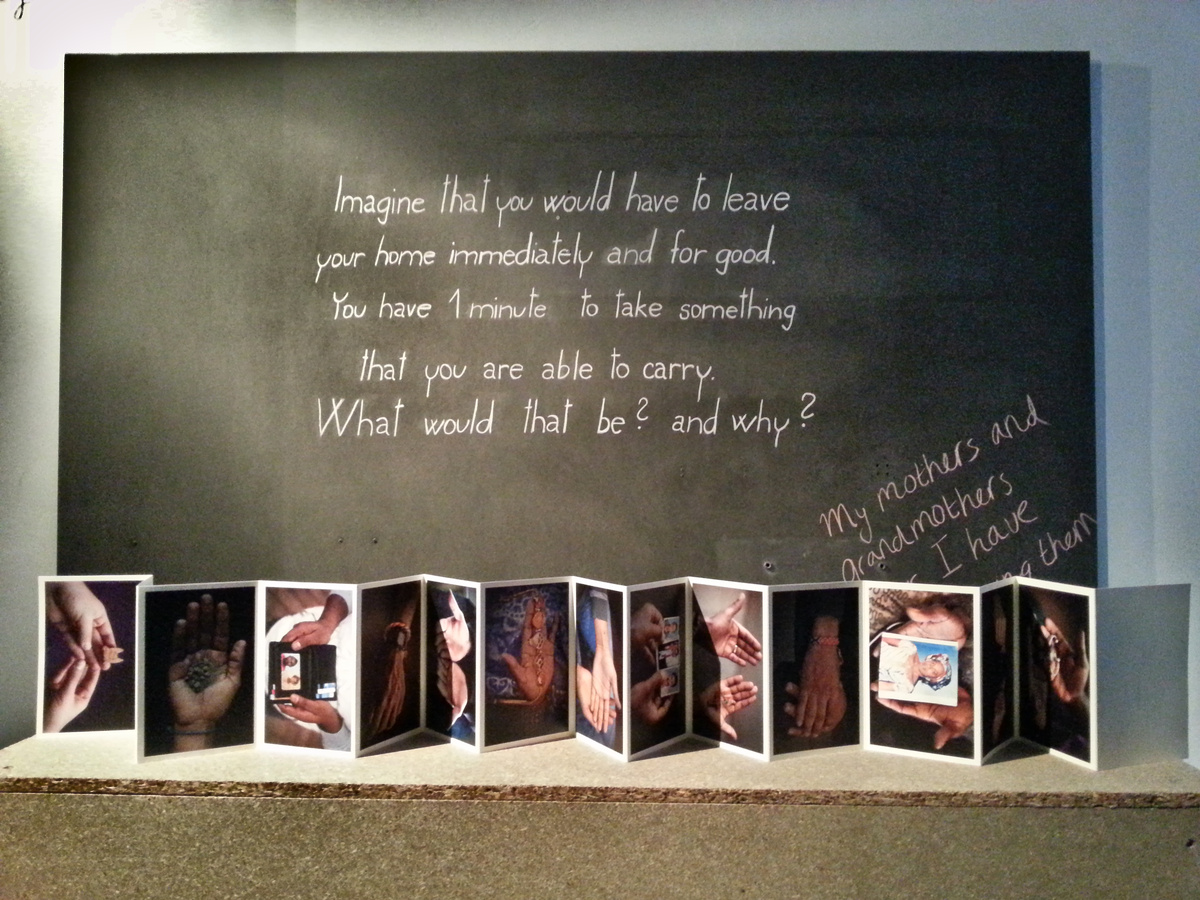 Imagine that you would have to leave
your home immediately and for good.
You have 1 minute to take something
that you are able to carry.
What would that be? and why?
My mothers and
grandmothers
I have
them